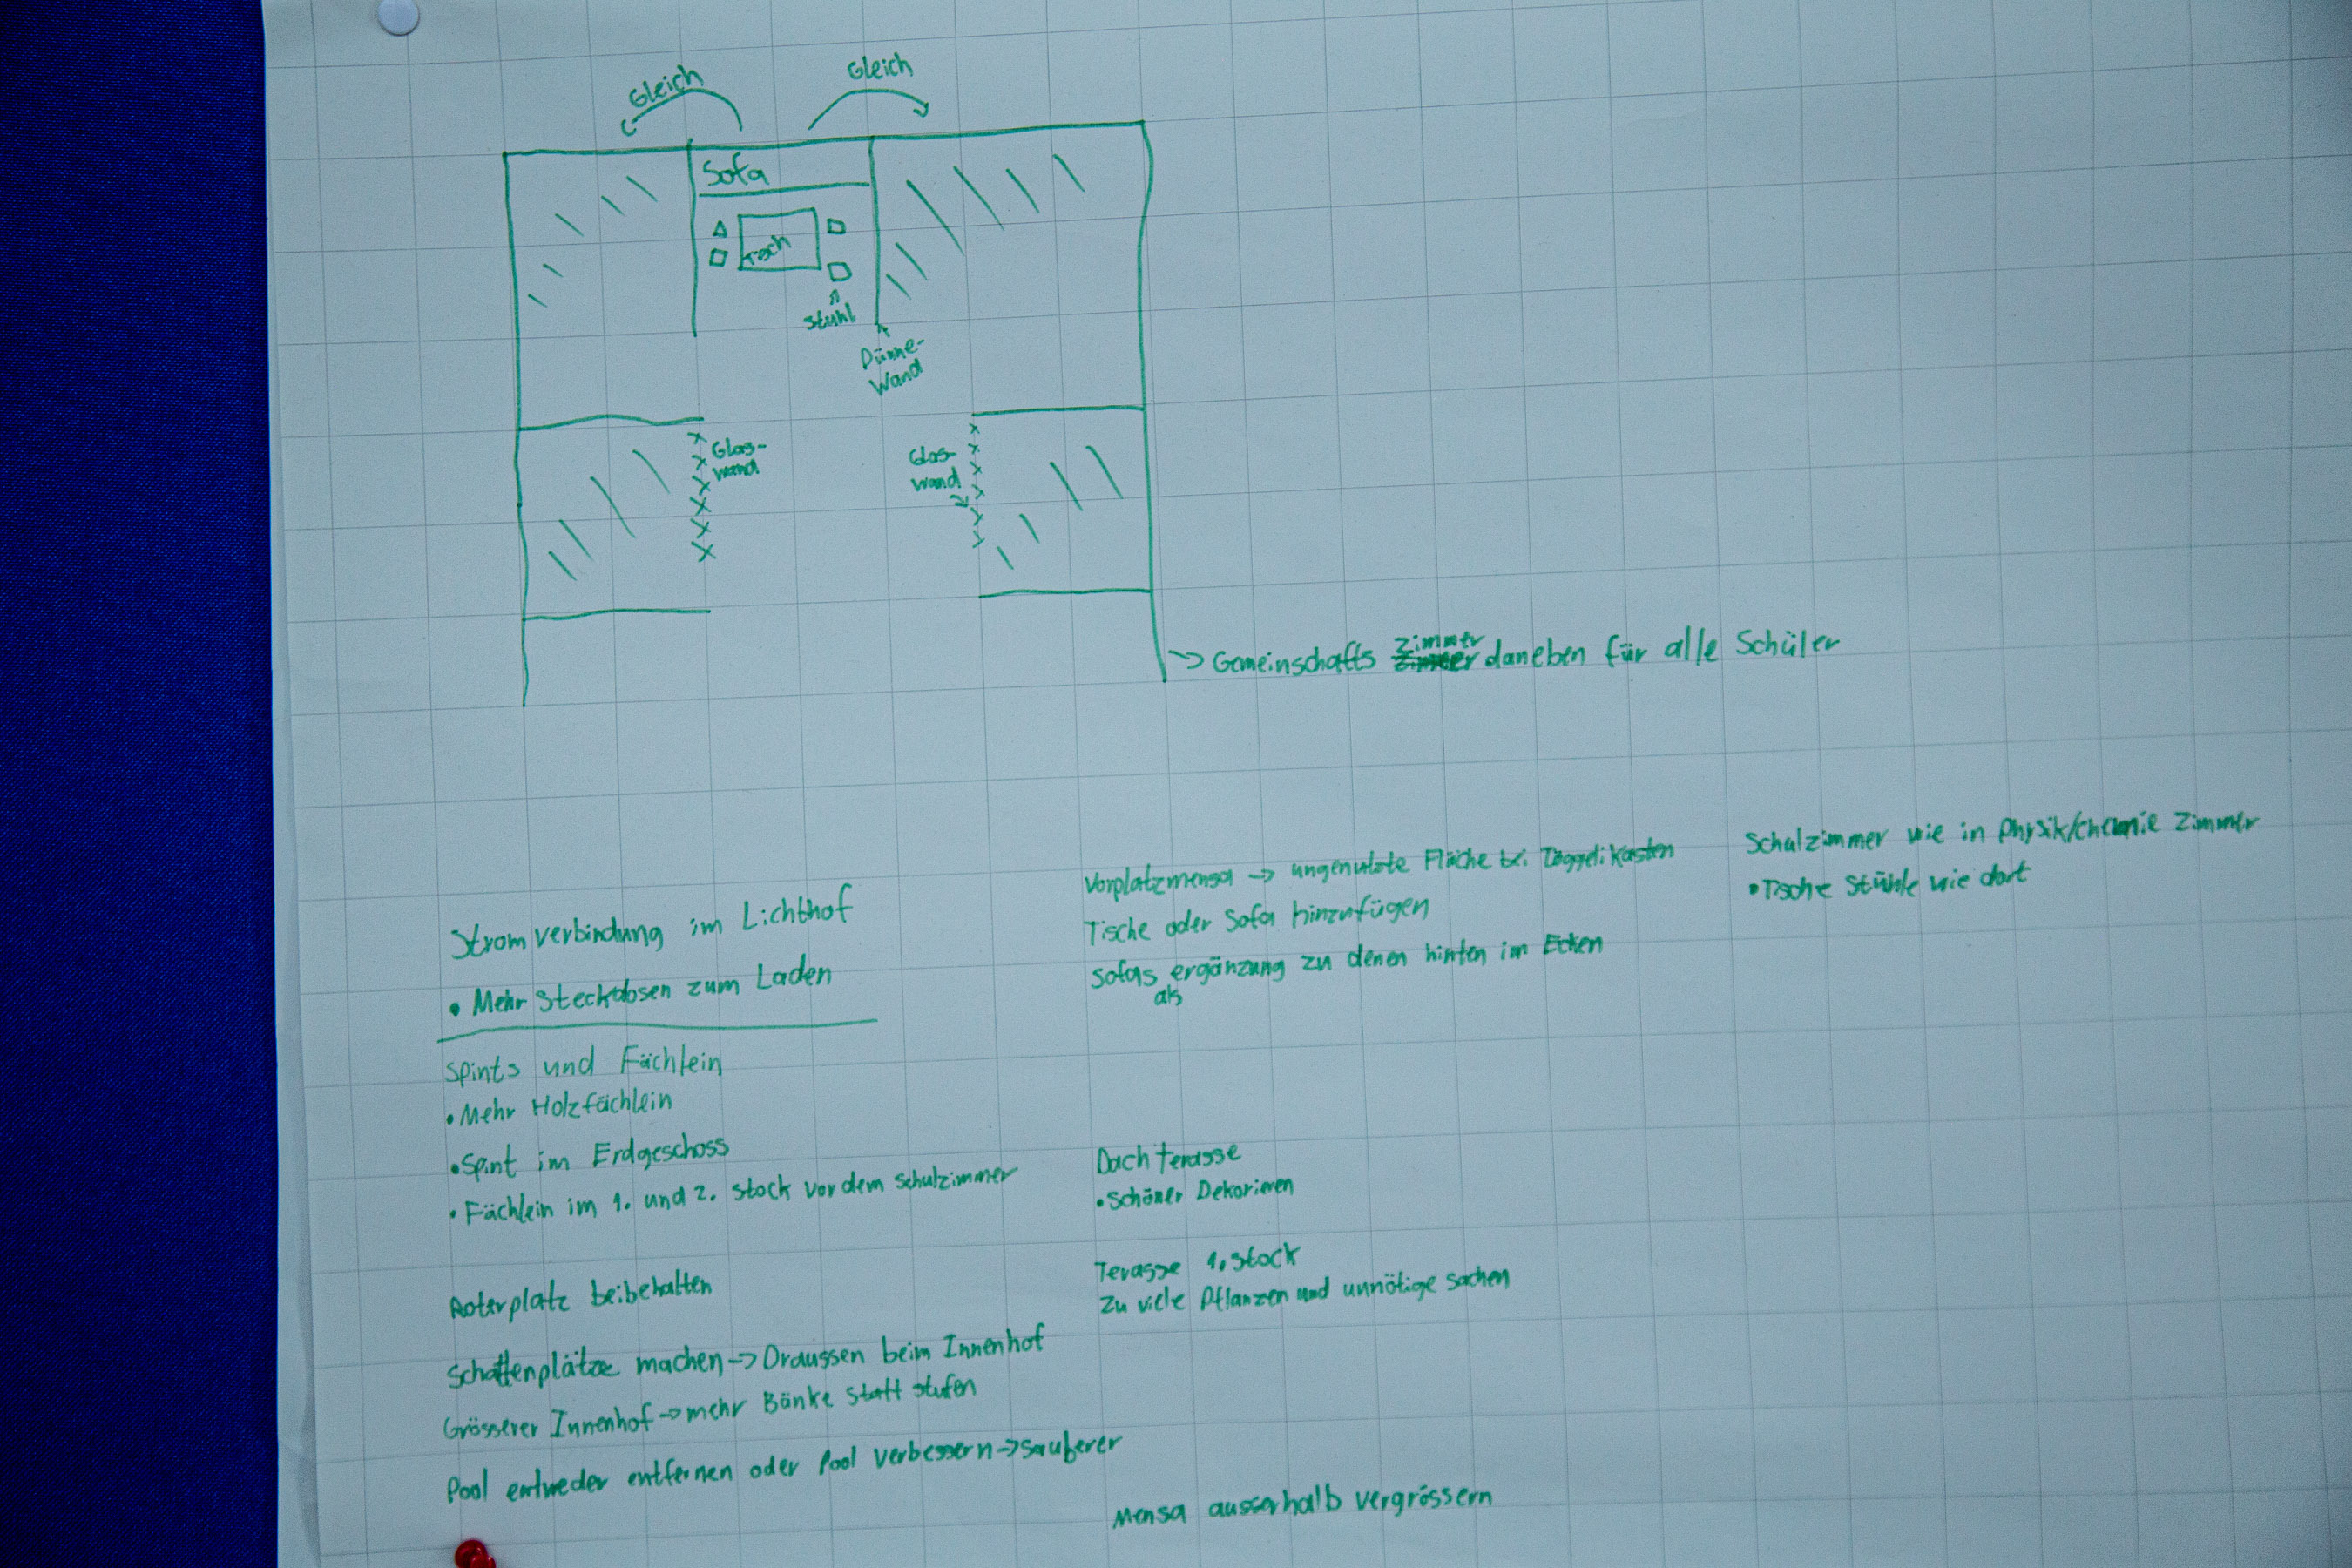 Gleich
Gleich
Sofa
Tisch
Stuhl
Dünne-
Wand
Glas-
wand
Glas-
wand
-> Gemeinschafts Zimmer daneben für alle Schüler
Stromverbindung im Lichthof
• Mehr Steckdosen zum Laden
Spints und Fächlein
• Mehr Holzfächlein
• Spint im Erdgeschoss
• Fächlein im 1. und 2. stock vor dem Schulzimmer
Roterplatz beibehalten
Schattenplätze machen -> Draussen beim Innenhof
Grösserer Innenhof -> mehr Bänke statt stufen
Pool entweder entfernen oder Pool verbessern -> sauberer
Vorplatzmensa -> ungenutzte Fläche bei Töggelikasten
Tische oder Sofa hinzufügen
Sofas als ergänzung zu denen hinten im Ecken
Dachterasse
• Schöner Dekorieren
Terasse 1. Stock
Zu viele Pflanzen und unnötige sachen
Mensa ausserhalb vergrössern
Schulzimmer wie in Physik/Chemie Zimmer
• Tische Stühle wie dort